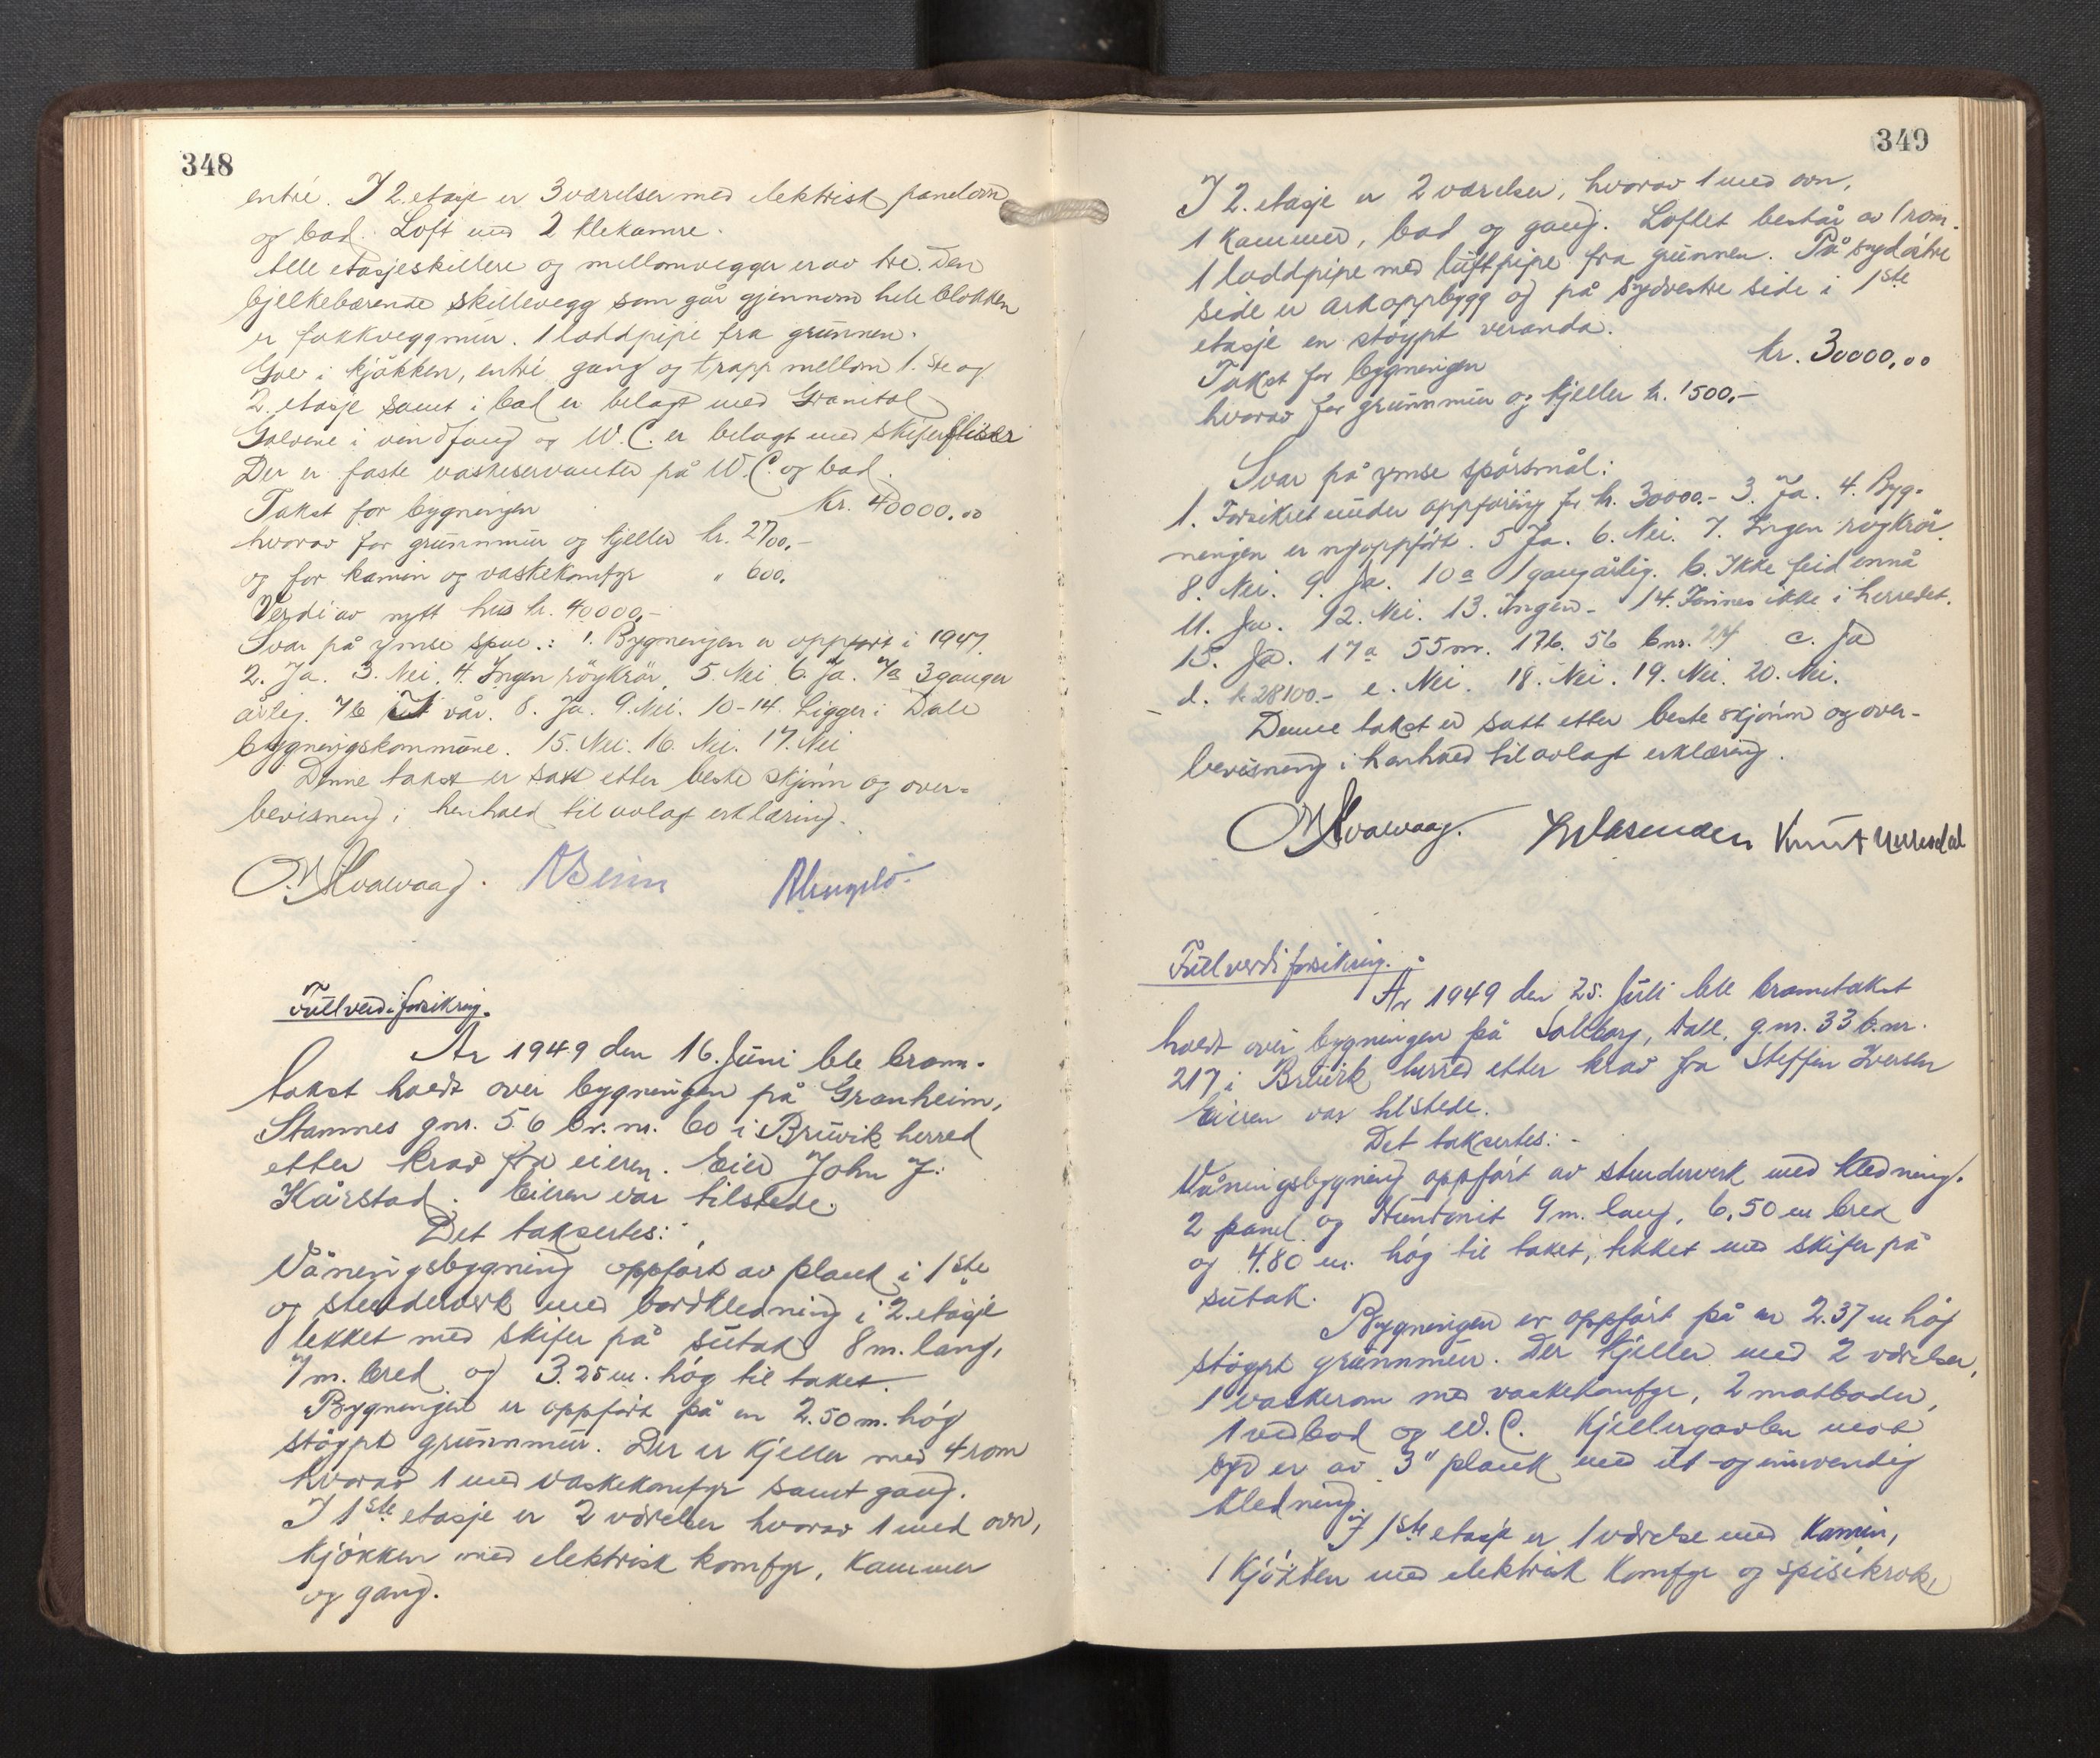 348
entré. I 2. etasje er 3 værelser med elektrisk panelovn
og bad. Loft med 2 klekamre.
Alle etasjeskillere og mellomvegger er av tre. Den
bjelkebærende skillevegg som går gjennom hele blokken
er fakkveggmur. 1 loddpipe fra grunnen.
Golv i kjøkken, entré gang og trapp mellom 1.ste og
2. etasje samt i bad er belagt med Granitol
Golvene i vindfang og W.C. er belagt med skiferfliser
Der er faste vaskeservanter på W.C. og bad.
Takst for bygningen kr. 40000.00
hvorav for grunnmur og kjeller kr. 2700.-
og for kamin og vaskekomfyr " 600.
Verdi av nytt hus kr. 40000.-
Svar på ymse spm.: 1. Bygningen er oppført i 1947.
2. Ja. 3. Nei. 4. Ingen røykrør. 5. Nei 6. Ja. 7a 3 ganger
årlig. 7b I vår. 8. Ja. 9. Nei. 10-14. Ligger i Dale
bygningskommune. 15. Nei. 16. Nei. 17. Nei
Denne takst er satt etter beste skjønn og over-
bevisning i henhold til avlagt erklæring.
O. Hvalvaag.
Fullverdiforsikring.
År 1949 den 16. Juni ble brann-
takst holdt over bygningen på Granheim,
Stamnes gnr. 56 br.nr. 60 i Bruvik herred
etter krav fra eieren. Eier John J.
Kårstad. Eieren var tilstede.
Det taksertes:
Våningsbygning oppført av plank i 1ste
og stenderverk med bordkledning i 2. etasje
tekket med skifer på sutak 8 m. lang,
7 m. bred og 3.25 m. høg til taket.
Bygningen er oppført på en 2.50 m. høg
støypt grunnmur. Der er kjeller med 4 rom
hvorav 1 med vaskekomfyr samt gang.
I 1ste etasje er 2 værelser hvorav 1 med ovn,
kjøkken med elektrisk komfyr, kammer
og gang.
349
I 2. etasje er 2 værelser, hvorav 1 med ovn,
1 kammer, bad og gang. Loftet består av 1 rom.
1 loddpipe med luftpipe fra grunnen. På sydøstre
side er arkoppbygg og på sydvestre side i 1ste
etasje en støypt veranda.
Takst for bygningen kr. 30000.00
hvorav for grunnmur og kjeller kr. 1500.-
Svar på ymse spørsmål:
1. Forsikret under oppføring for kr. 30000.- 3. Ja. 4. Byg-
ningen er nyoppført. 5 Ja. 6. Nei. 7. Ingen røykrør.
8. Nei. 9. Ja. 10a 1 gang årlig. b. Ikke feid ennå
11. Ja. 12. Nei. 13. Ingen - 14. Finnes ikke i herredet.
15. Ja. 17a 55 m. 17b. 56 bnr. 24 c. Ja
d. kr 28100.- e. Nei. 18. Nei. 19. Nei. 20. Nei.
Denne takst er satt etter beste skjønn og over-
bevisning i henhold til avlagt erklæring.
O. Hvalvaag.
Fullverdiforsikring.
År 1949 den 25. Juli ble branntakst
holdt over bygningen på Solborg, Dale, g.nr. 33 b.nr.
217 i Bruvik herred etter krav fra Steffen Iversen
Eieren var tilstede.
Det taksertes:-
Våningsbygning oppført av stenderverk med kledning.
2 panel og Huntonit 9 m. lang, 6,50 m bred
og 4.80 m. høg til taket, tekket med skifer på
sutak.
Bygningen er oppført på en 2.37 m høg
støypt grunnmur. Der kjeller med 2 værelser,
1 vaskerom med vaskekomfyr, 2 matboder,
1 vedbod og W.C. Kjellergavlen mot
syd er av 3" plank med ut- og innvendig
kledning.
I 1ste etasje er 1 værelse med Kamin,
1 Kjøkken med elektrisk Komfyr og spisekrok,